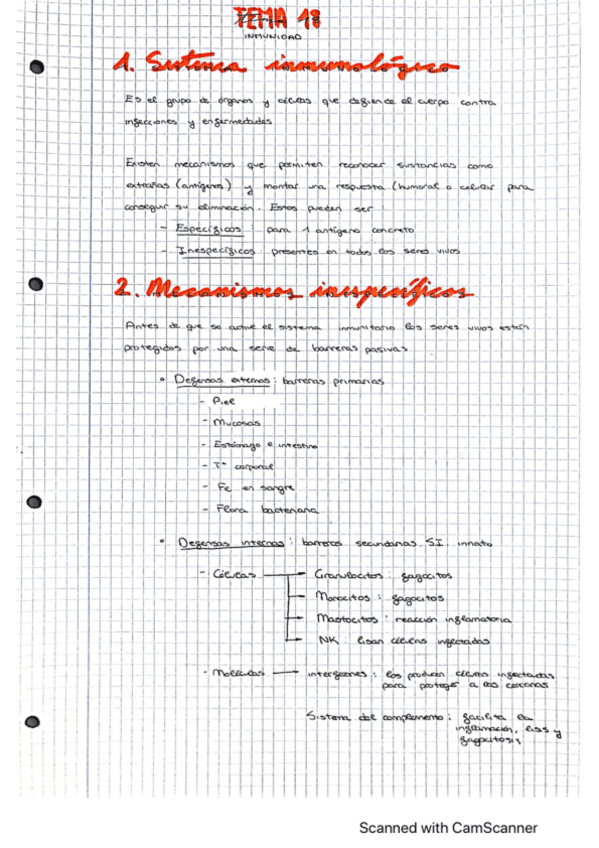 TEMA 18
INMUNIDAD
1. Sistema inmunológico
Es el grupo de órganos y células que defiende al cuerpo contra
infecciones y enfermedades
Existen mecanismos que permiten reconocer sustancias como
extrañas (antígenos) y montar una respuesta (humoral o celular para
conseguir su eliminación. Estos pueden ser:
- Específicos: para 1 antígeno concreto
- Inespecíficos: presentes en todos los seres vivos
2. Mecanismos inespecíficos
Antes de que se active el sistema inmunitario los seres vivos están
protegidos por una serie de barreras pasivas
• Defensas externas: barreras primarias
- Piel
- Mucosas
- Estómago e intestino
- Tª corporal
- Fe en sangre
- Flora bacteriana
• Defensas internas: barreras secundarias. SI. innato
- Células
Granulocitos: fagocitos
Monocitos: fagocitos
Mastocitos: reacción inflamatoria
NK: lisan células infectadas
- Moléculas
interferones: los producen células infectadas
para proteger a las cercanas
Sistema del complemento: facilita la
inflamación, lisis y
fagocitosis
Scanned with CamScanner